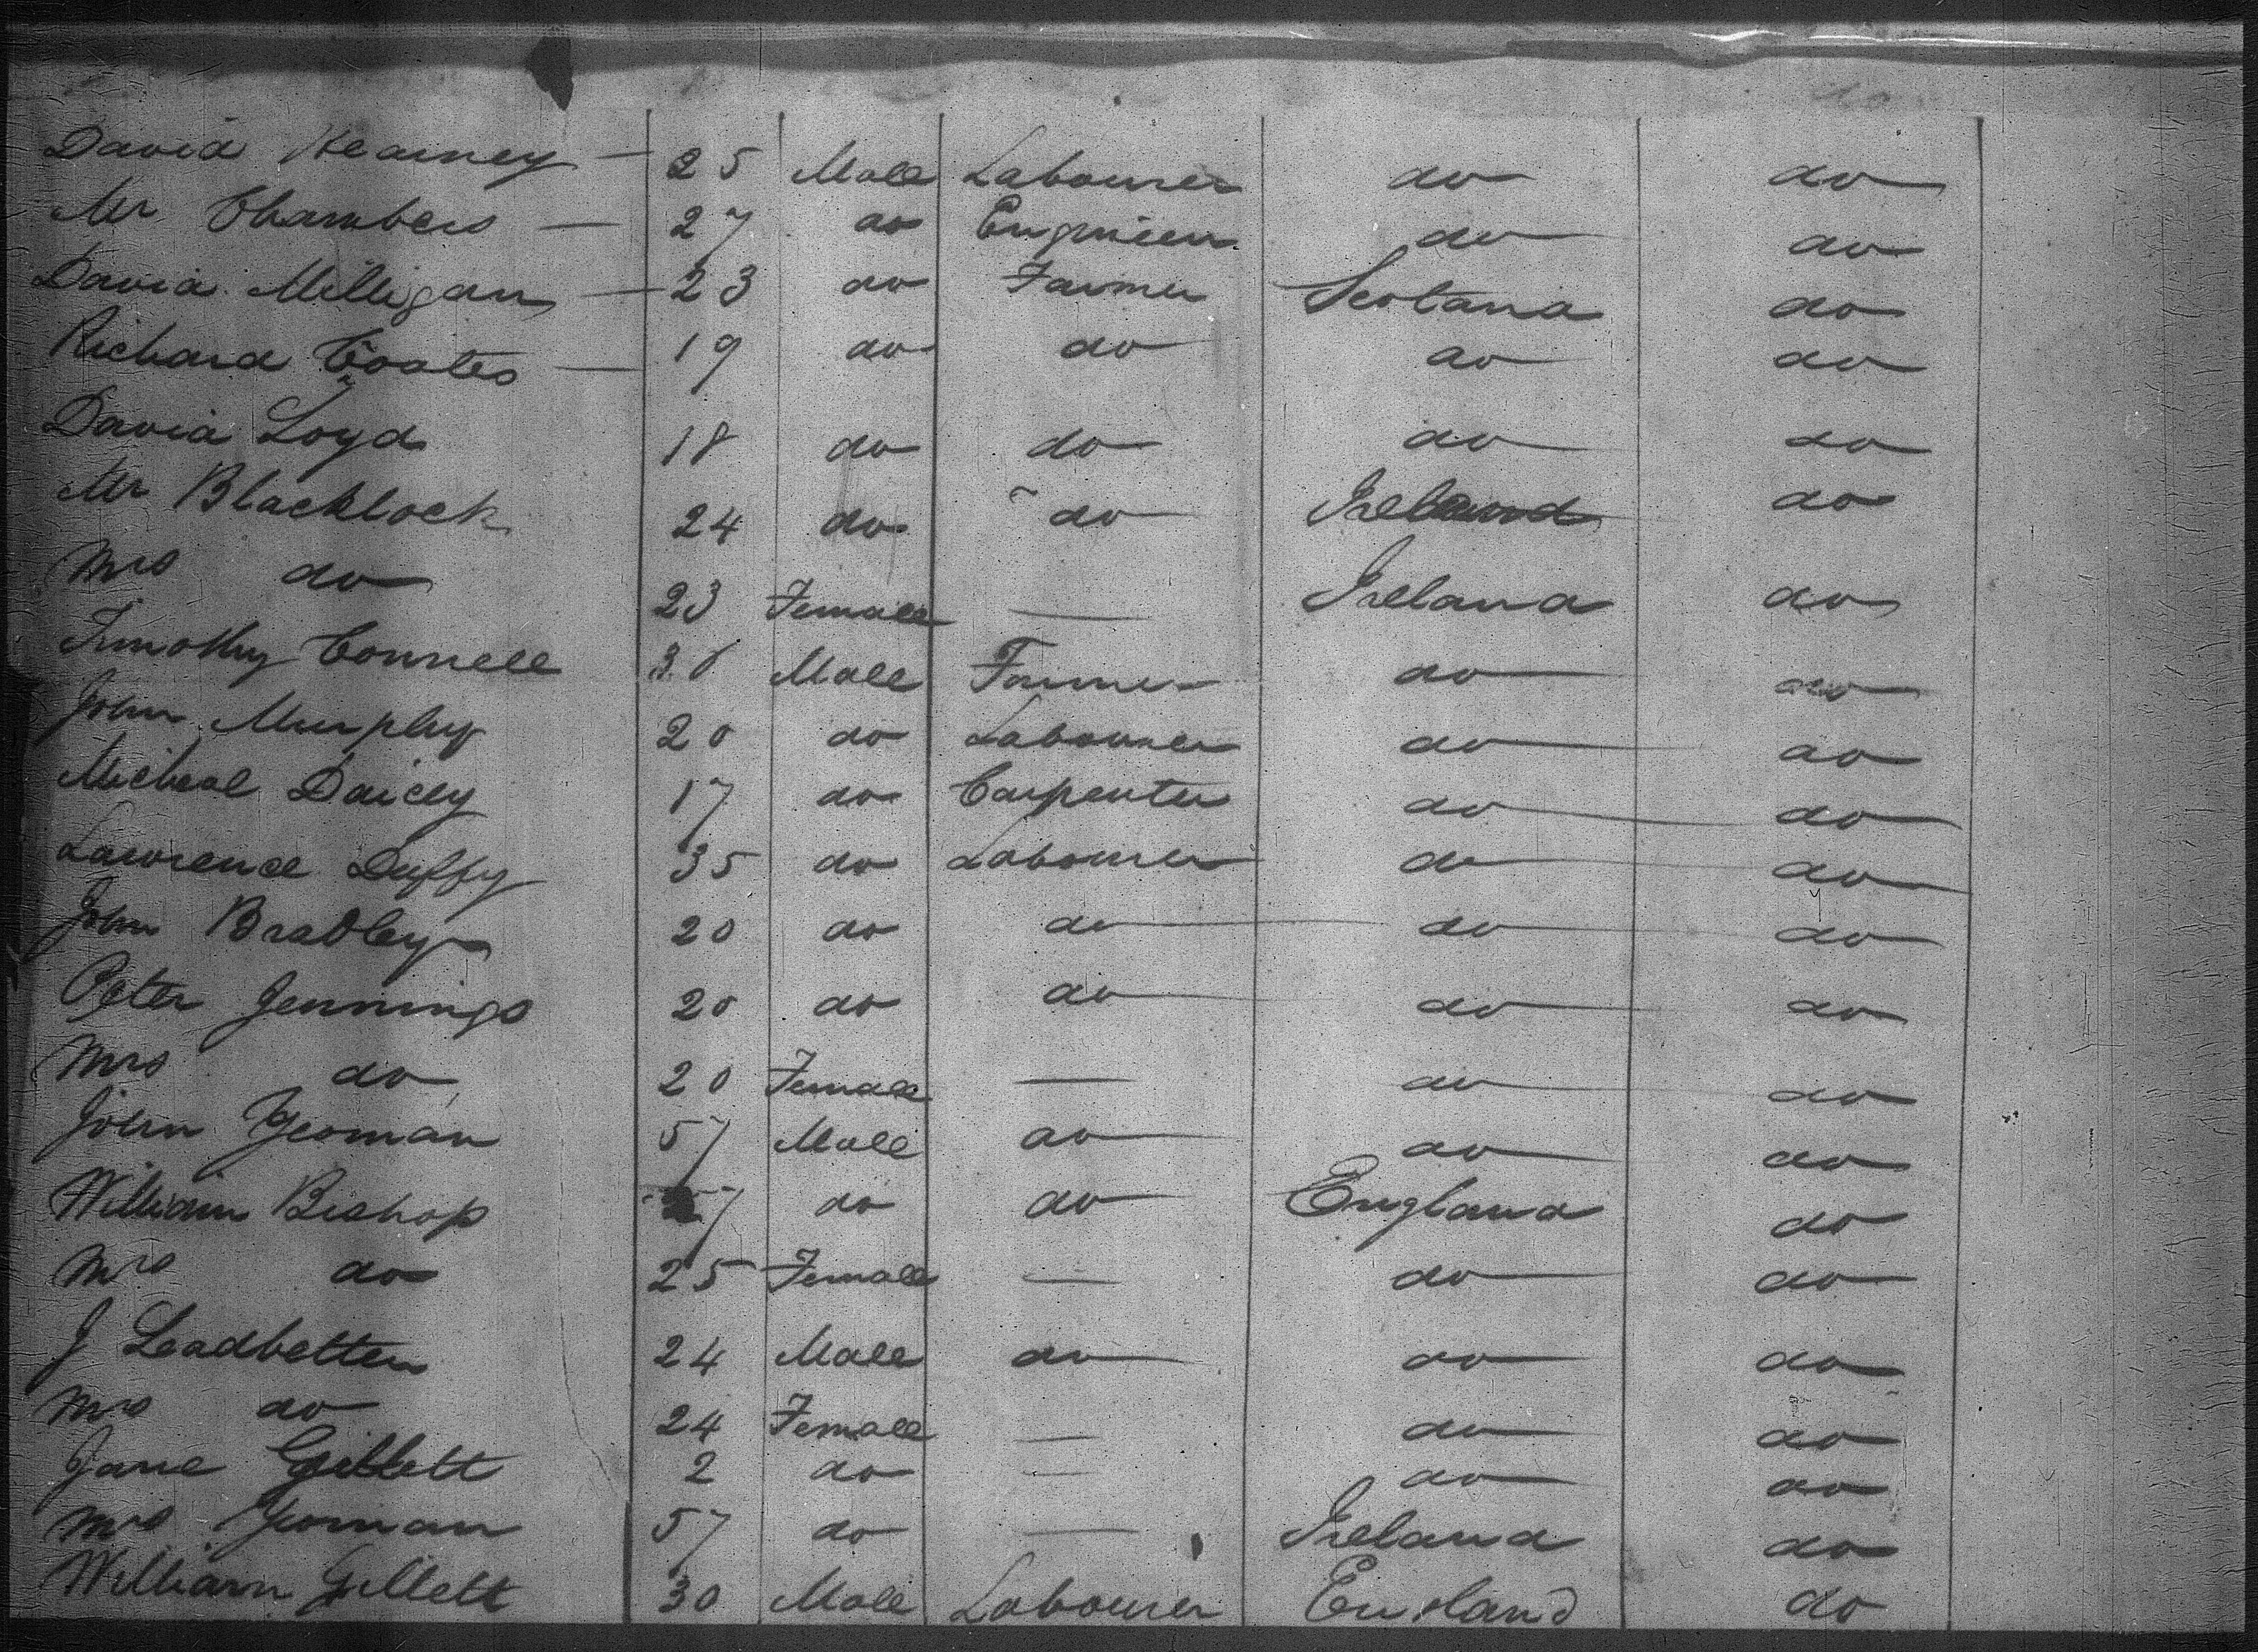 David Kearney — 25 Male Labourer do do
Mr Chambers — 27 do Engineer do do
David Milligan — 23 do Farmer Scotland do
Richard Coates — 19 do do do do
David Loyd 18 do do do do
Mr Blacklock 24 do do Ireland do
Mrs do 23 Female — Ireland do
Timothy Connell Male Farmer do do
John Murphy 20 do Labourer do do
Micheal Daicey 17 do Carpenter do do
Lawrence Duffy 35 do Labourer do do
John Bradley 20 do do do do
Peter Jennings 20 do do do do
Mrs do 20 Female — do do
John Yeoman 57 Male do do do
William Bishop do do England do
Mrs do 25 Female — do do
J Leadbetter 24 Male do do do
Mrs do 24 Female — do do
Jane Gillett 2 do — do do
Mrs Yeoman 57 do — Ireland do
William Gillett 30 Male Labourer England do